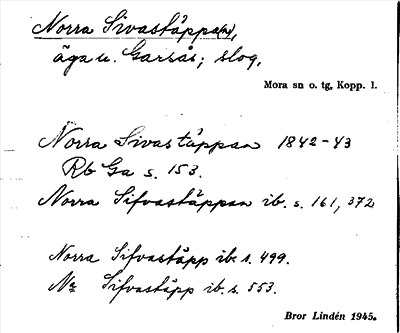 Norra Sivastäppa(n),
äga u. Garsås; slog.
Mora sn o. tg, Kopp. l.
Norra Sivastäppan 1842-43
Rb Ga s. 153.
Norra Sifvastäppan ib. s. 161, 372
Norra Sifvastäpp ib. s. 499.
Na Sifvastäpp ib. s. 553.
Bror Lindén 1945.